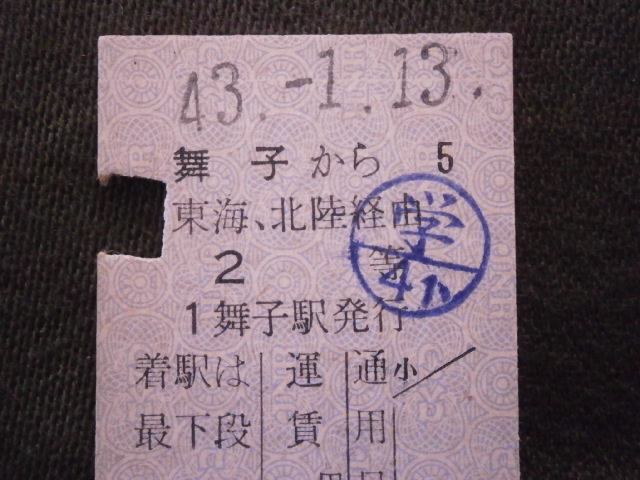 43.-1.13.
舞子から 5
東海、北陸経由
2 等
学
小
1舞子駅発行
着駅は 運 通 小
最下段 賃 用